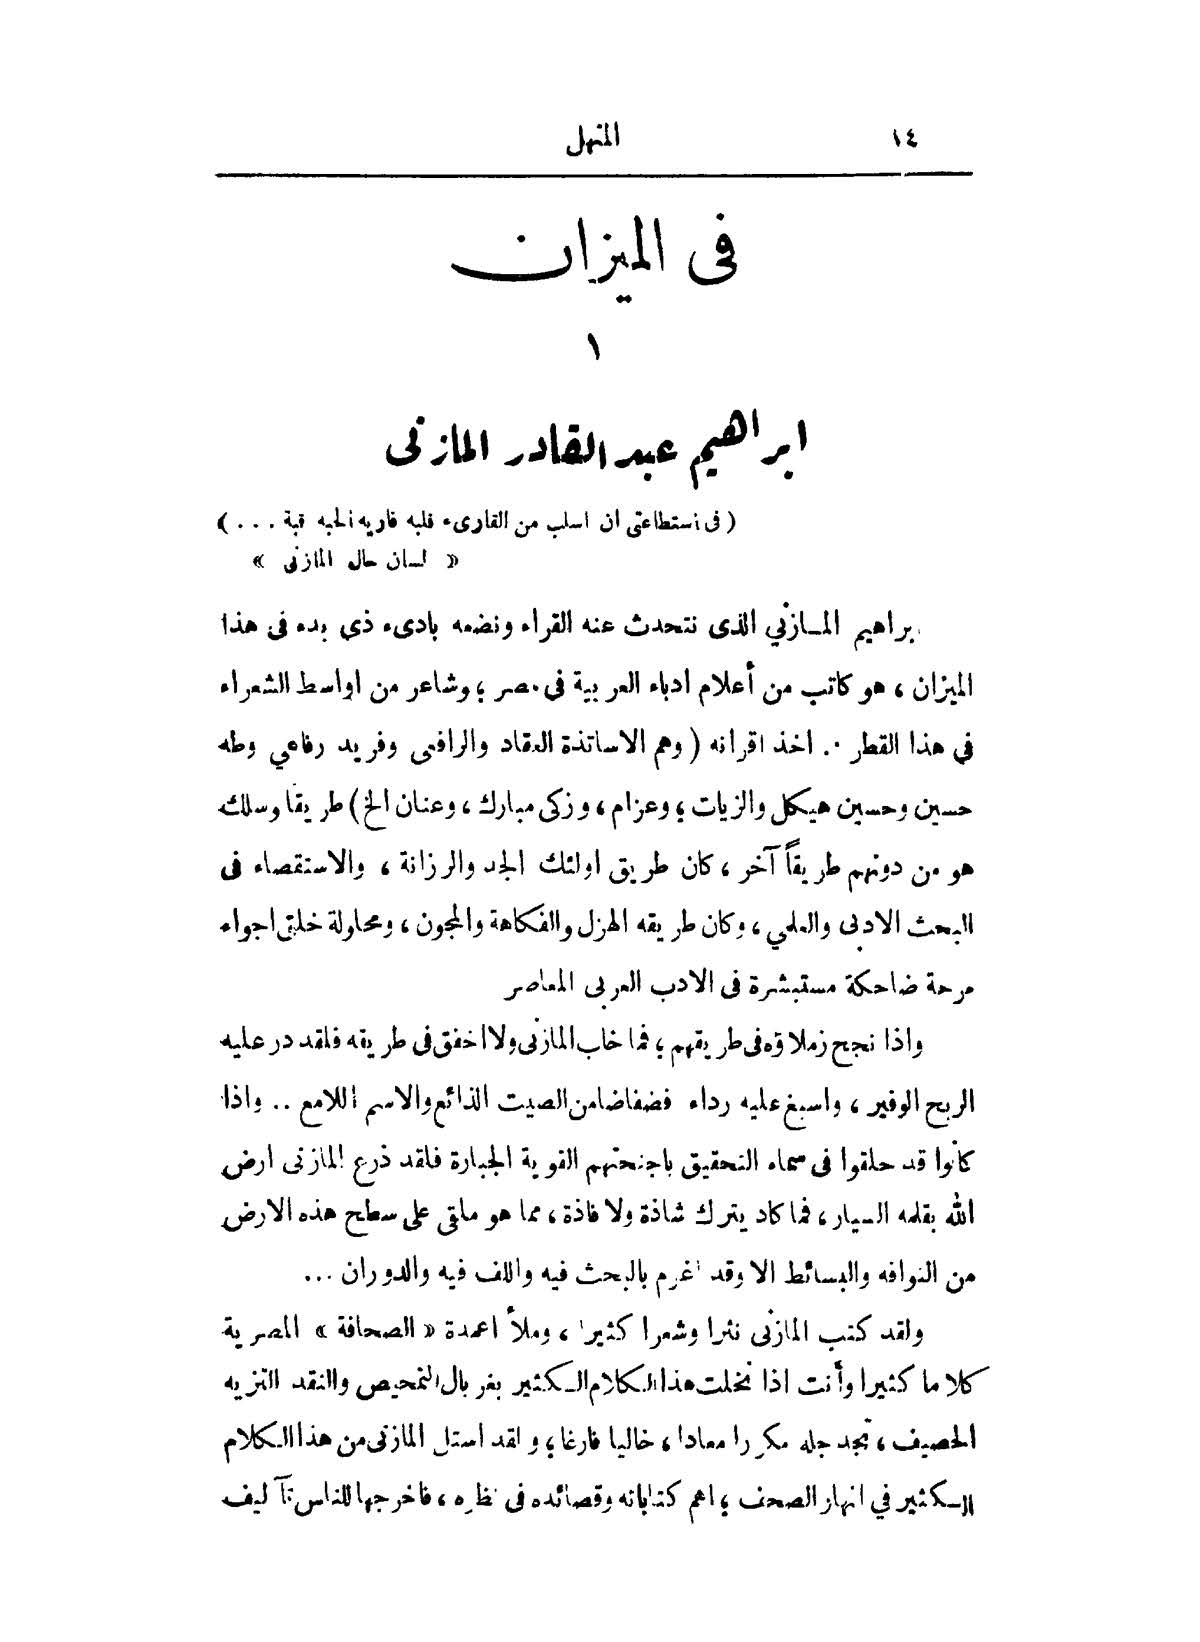 ١٤ المنهل
في الميزان
١
ابراهيم عبد القادر المازني
( في استطاعتى ان اسلب من القارىء قلبه فاريه الحبه قبة . . . )
« لسان حال المازنى »
ابراهيم المازني الذى نتحدث عنه القراء ونضعه بادىء ذي بدء فى هذا
الميزان ، هو كاتب من أعلام ادباء العربية فى مصر ؛ وشاعر من اواسط الشعراء
في هذا القطر .. اخذ اقرانه ( وهم الاساتذة العقاد والرافعى وفريد رفاعي وطه
حسين وحسين هيكل والزيات ؛ وعزام ، وزكى مبارك ، وعنان الخ ) طريقا وسلك
هو من دونهم طريقاً آخر ، كان طريق اولئك الجد والرزانة ، والاستقصاء فى
البحث الادبى والعلمي ، وكان طريقه الهزل والفكاهة والمجون ، ومحاولة خلق اجواء
مرحة ضاحكة مستبشرة فى الادب العربى المعاصر
واذا نجح زملاؤه فى طريقهم ؛ فما خاب المازنى ولا اخفق فى طريقه فلقد در عليه
الربح الوفير ، واسبغ عليه رداء فضفاضا من الصيت الذائع والاسم اللامع .. واذا
كانوا قد حلقوا فى سماء التحقيق باجنحتهم القوية الجبارة فلقد ذرع المازنى ارض
الله بقلمه السيار ، فما كاد يترك شاذة ولا فاذة ، مما هو ملقى على سطح هذه الارض
من النوافه والبسائط الا وقد اغرم بالبحث فيه واللف فيه والدوران ...
ولقد كتب المازنى نثرا وشعرا كثيرا ، وملأ اعمدة « الصحافة » المصرية
كلاما كثيرا وأنت اذا نخلت هذا الكلام الكثير بغربال التمحيص والنقد النزيه
الحصيف ، تجد جله مكررا معادا ، خاليا فارغا ؛ ولقد استل المازنى من هذا الكلام
الكثير في انهار الصحف ؛ اهم كتاباته وقصائده فى نظره ، فاخرجها للناس تآليف